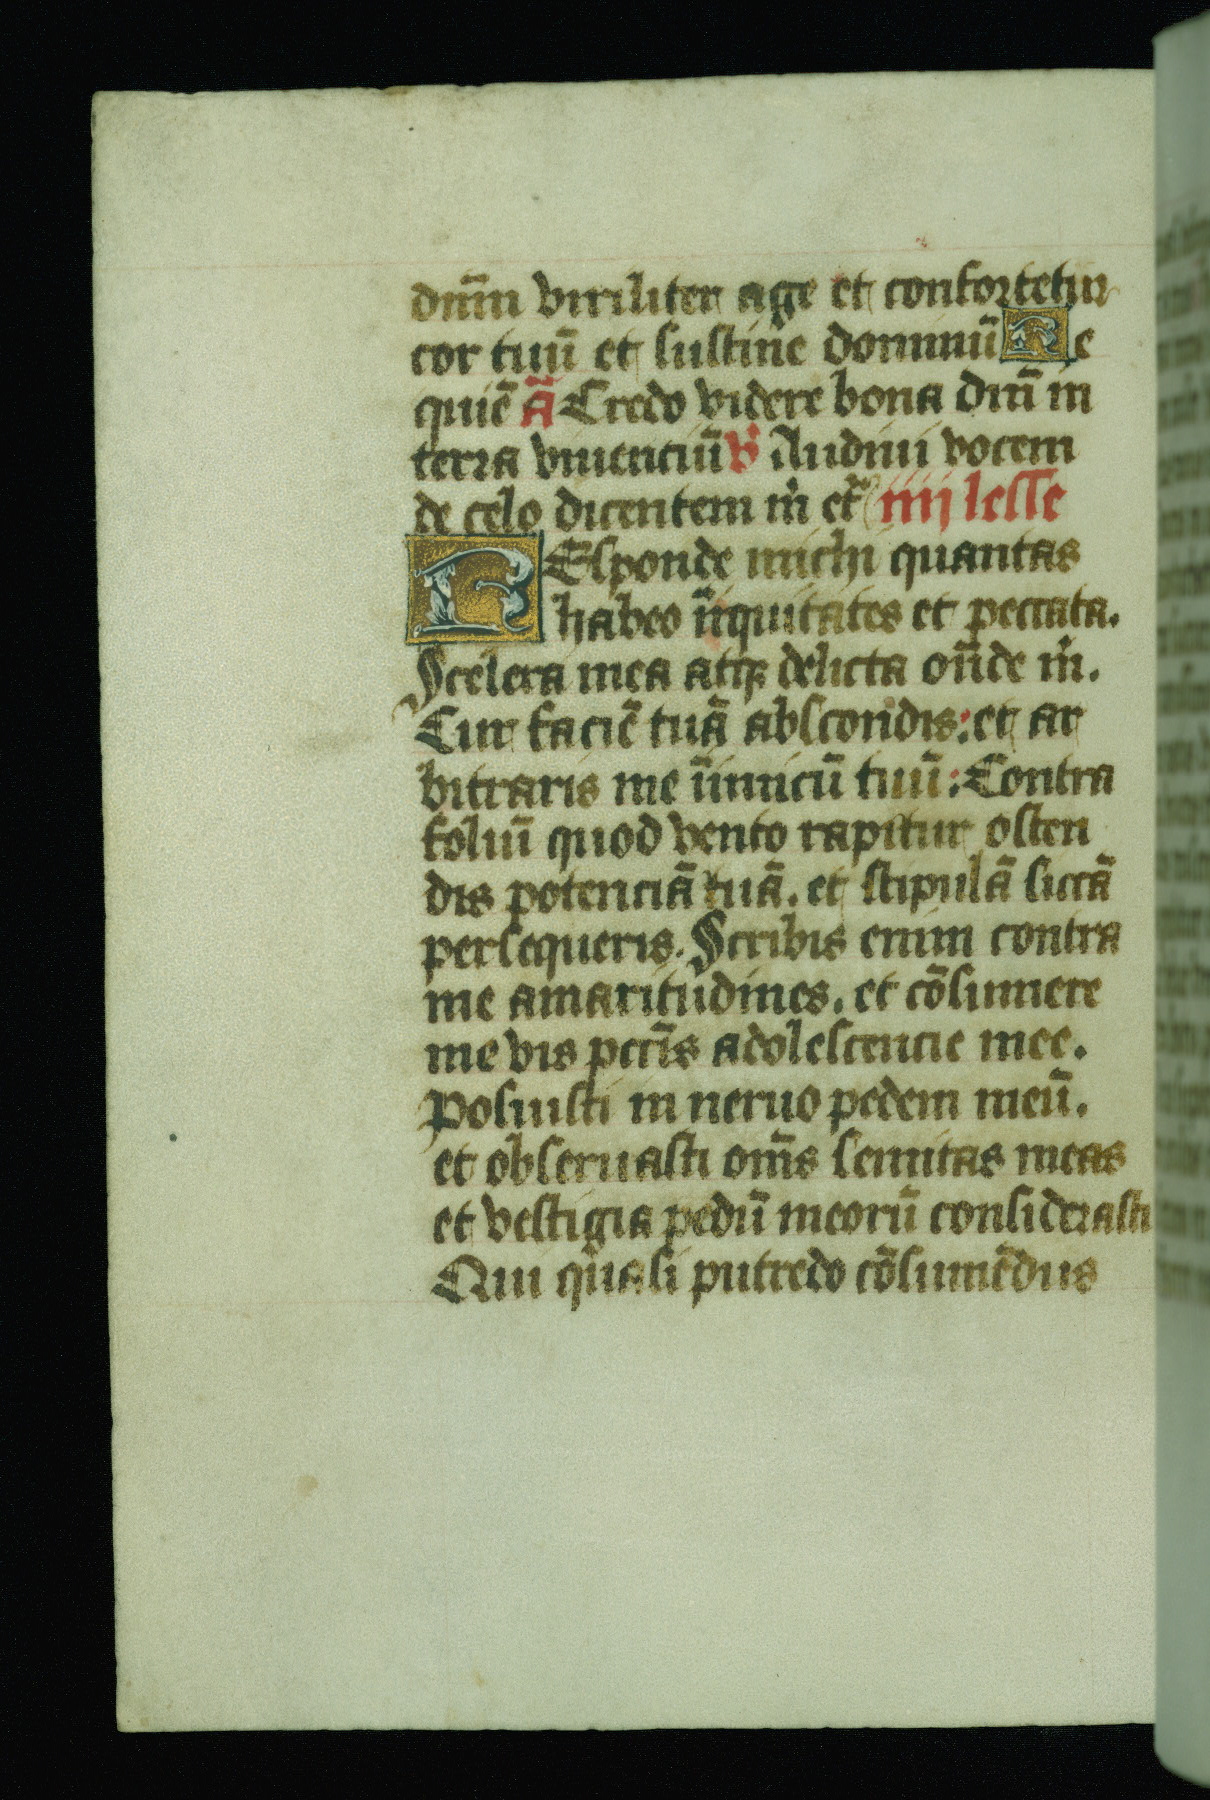 dn̄m viriliter age et confortetur
cor tuū et sustine dominū Re
quiē ā Credo videre bona dn̄i in
terra viuenciū v̾ Audiui vocem
de celo dicentem m̍ et̾ iiij lesse
REsponde michi quantas
habeo īiquitates et peccata.
Scelera mea atqꝫ delicta on̄de m̍.
Cur faciē tuā abscondis: et ar
bitraris me īimicū tuū: Contra
foliū quod vento rapitur osten
dis potenciā tuā. et stipulā siccā
persequeris. Scribis enim contra
me amaritudines. et cōsumere
me vis pcc̄is adolescencie mee.
Posuisti in neruo pedem meū.
et obseruasti om̄s semitas meas
et vestigia pedū meorū considerasti
Qui quasi putredo cōsumēdus